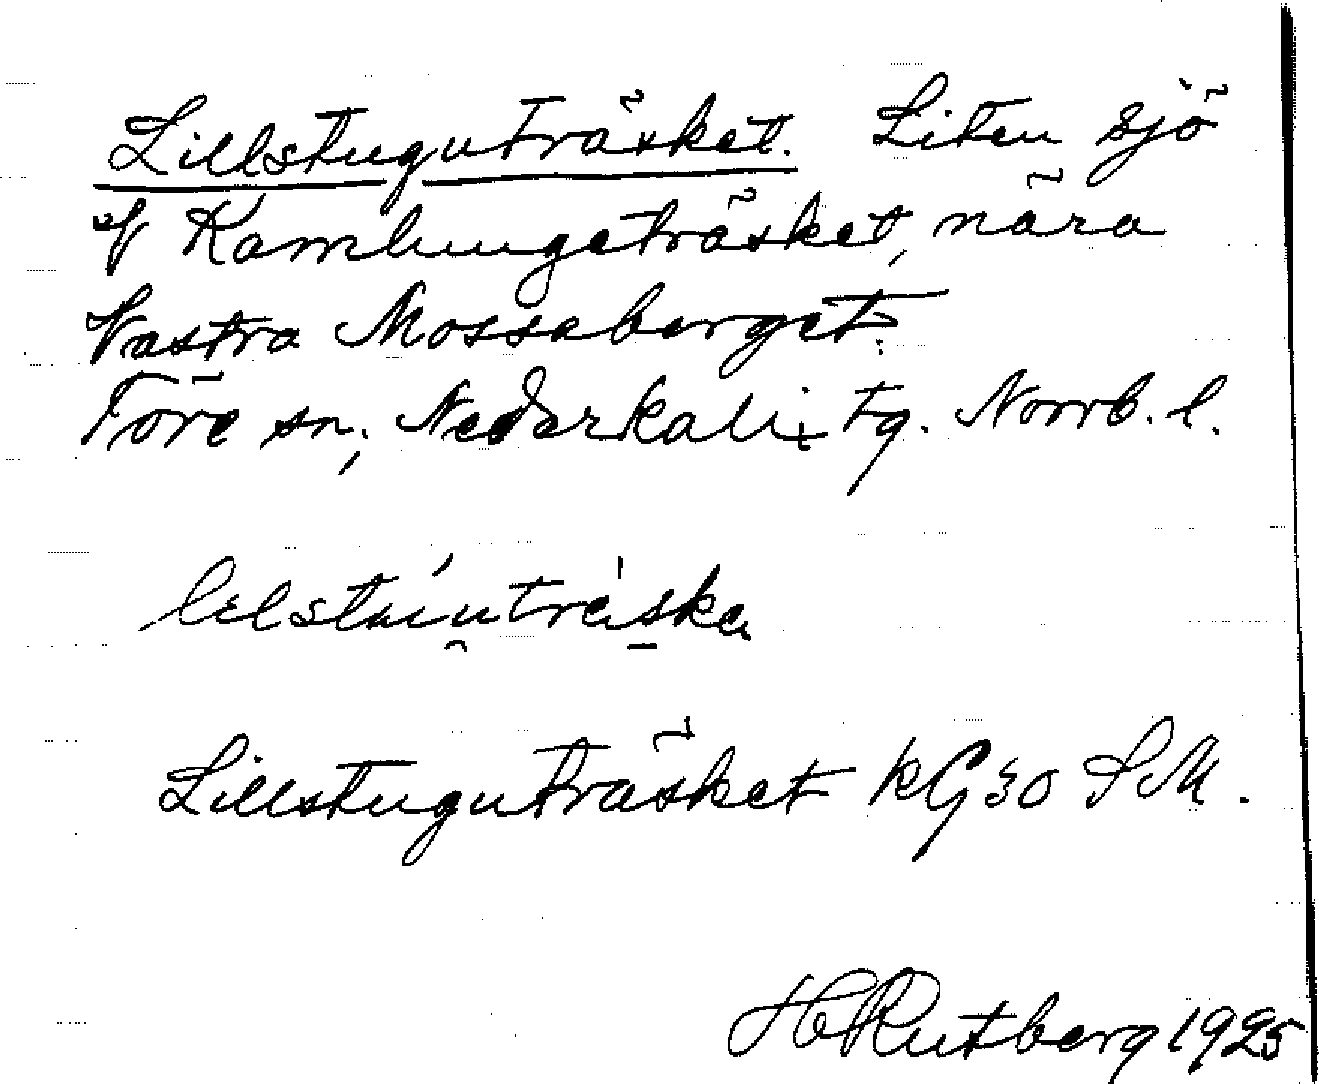 Lillstuguträsket. Liten sjö
V Kamlungeträsket, nära
Västra Mossaberget.
Töre sn, Nederkalix tg. Norrb. l.
Lillstuguträsket KG 30 SM.
H Rutberg 1925